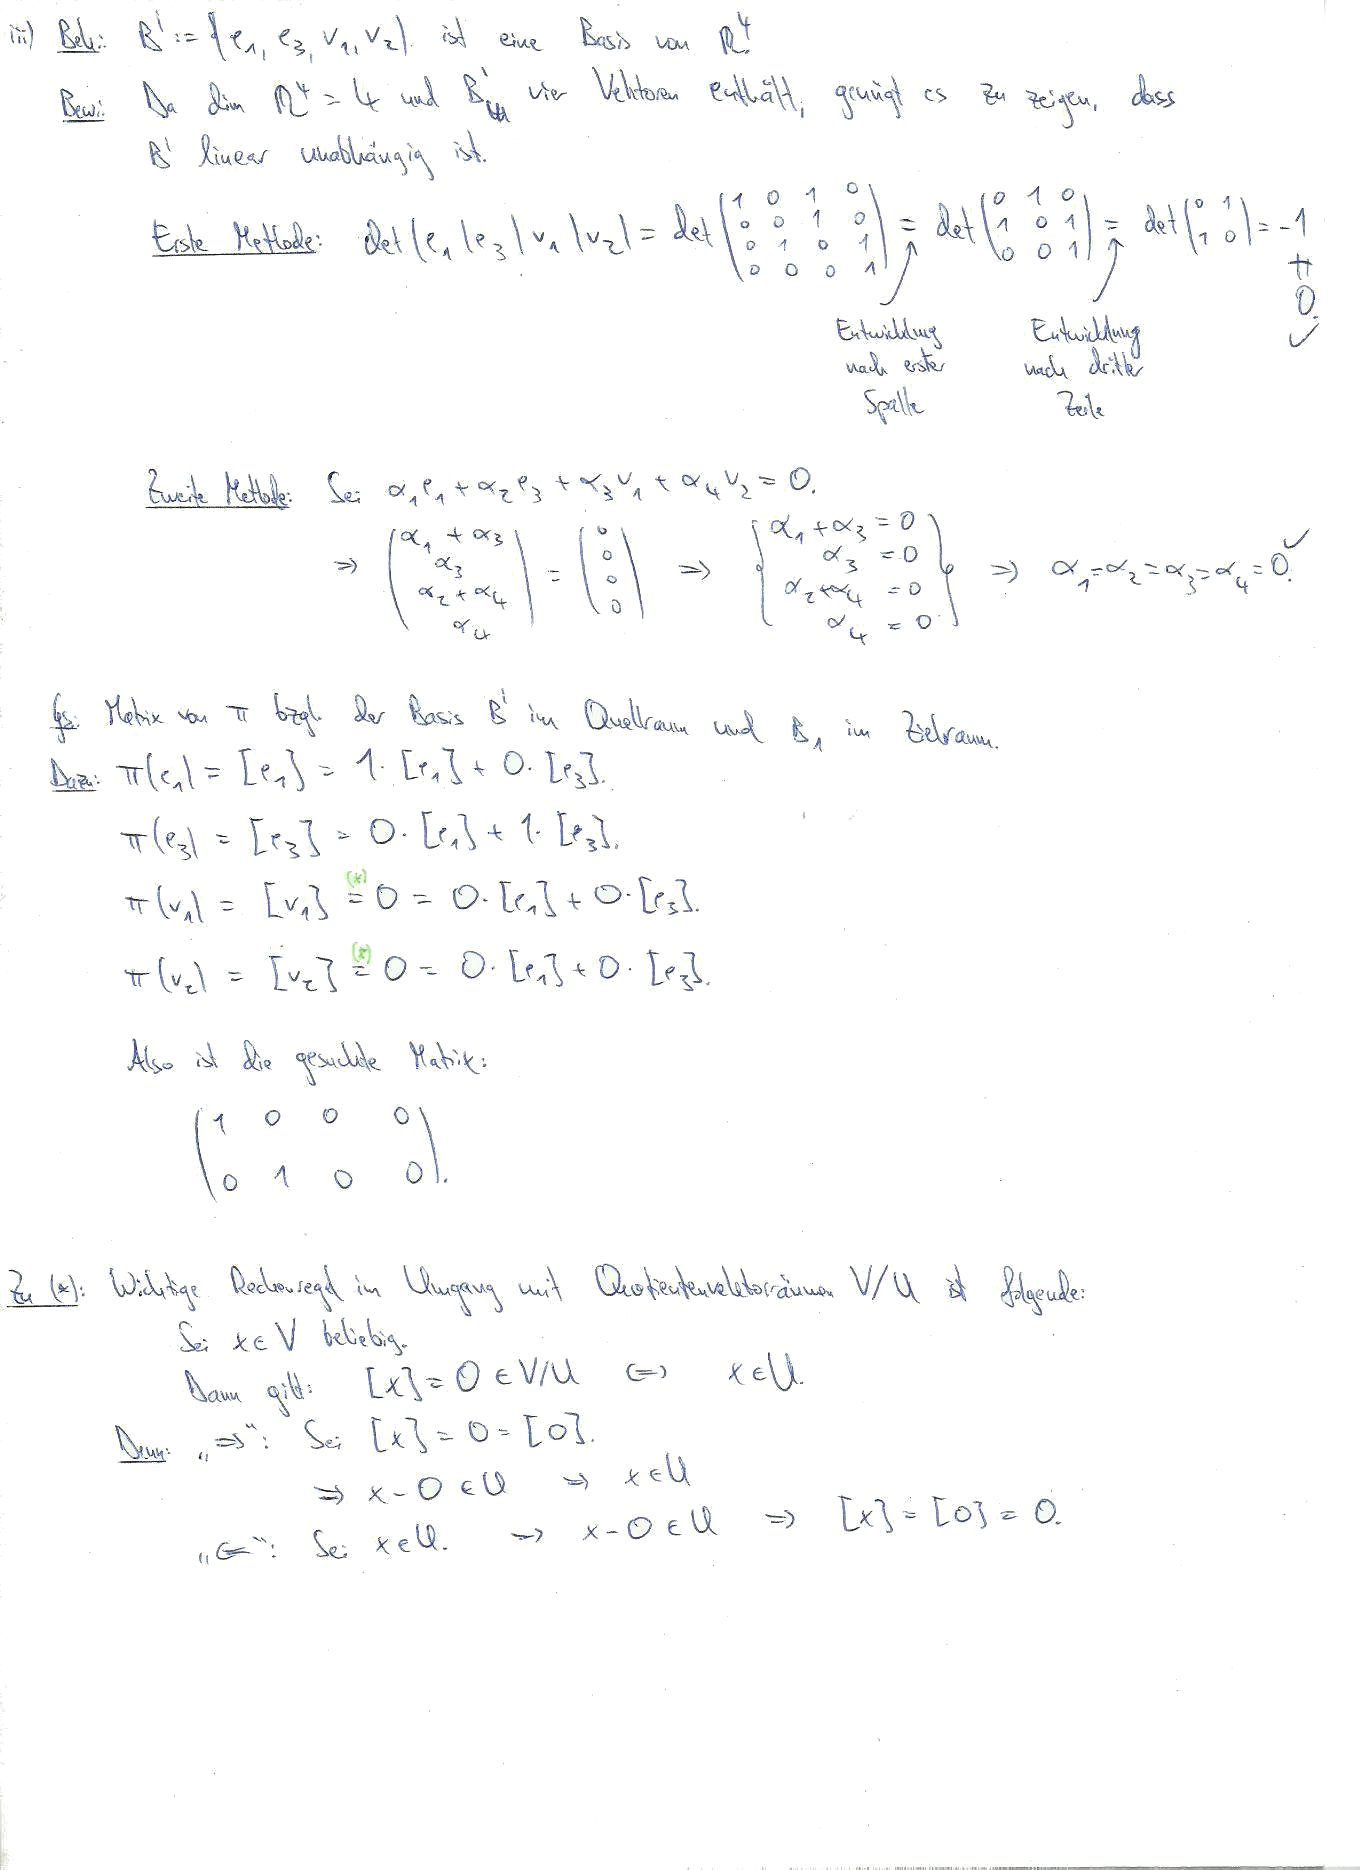 iii) Beh.: B' := {e₁, e₃, v₁, v₂} ist eine Basis von ℝ⁴.
Bew.: Da dim ℝ⁴ = 4 und B' vier Vektoren enthält, genügt es zu zeigen, dass
B' linear unabhängig ist.
Erste Methode: det(e₁|e₃|v₁|v₂) = det (1 0 1 0; 0 0 1 0; 0 1 0 1; 0 0 0 1) = det (0 1 0; 1 0 1; 0 0 1) = det (0 1; 1 0) = -1 ≠ 0. ✓
Entwicklung nach erster Spalte
Entwicklung nach dritter Zeile
Zweite Methode: Sei α₁e₁ + α₂e₃ + α₃v₁ + α₄v₂ = 0.
⇒ (α₁ + α₃; α₃; α₂ + α₄; α₄) = (0; 0; 0; 0) ⇒ {α₁ + α₃ = 0; α₃ = 0; α₂ + α₄ = 0; α₄ = 0} ⇒ α₁ = α₂ = α₃ = α₄ = 0. ✓
Gs.: Matrix von π bzgl. der Basis B' im Quellraum und B₁ im Zielraum.
Dazu: π(e₁) = [e₁] = 1·[e₁] + 0·[e₃].
π(e₃) = [e₃] = 0·[e₁] + 1·[e₃].
π(v₁) = [v₁] (*)= 0 = 0·[e₁] + 0·[e₃].
π(v₂) = [v₂] (*)= 0 = 0·[e₁] + 0·[e₃].
Also ist die gesuchte Matrix:
(1 0 0 0
0 1 0 0).
Zu (*): Wichtige Rechenregel im Umgang mit Quotientenvektorräumen V/U ist folgende:
Sei x ∈ V beliebig.
Dann gilt: [x] = 0 ∈ V/U ⇔ x ∈ U.
Denn: „⇒“: Sei [x] = 0 = [0].
⇒ x - 0 ∈ U ⇒ x ∈ U
„⇐“: Sei x ∈ U. ⇒ x - 0 ∈ U ⇒ [x] = [0] = 0.